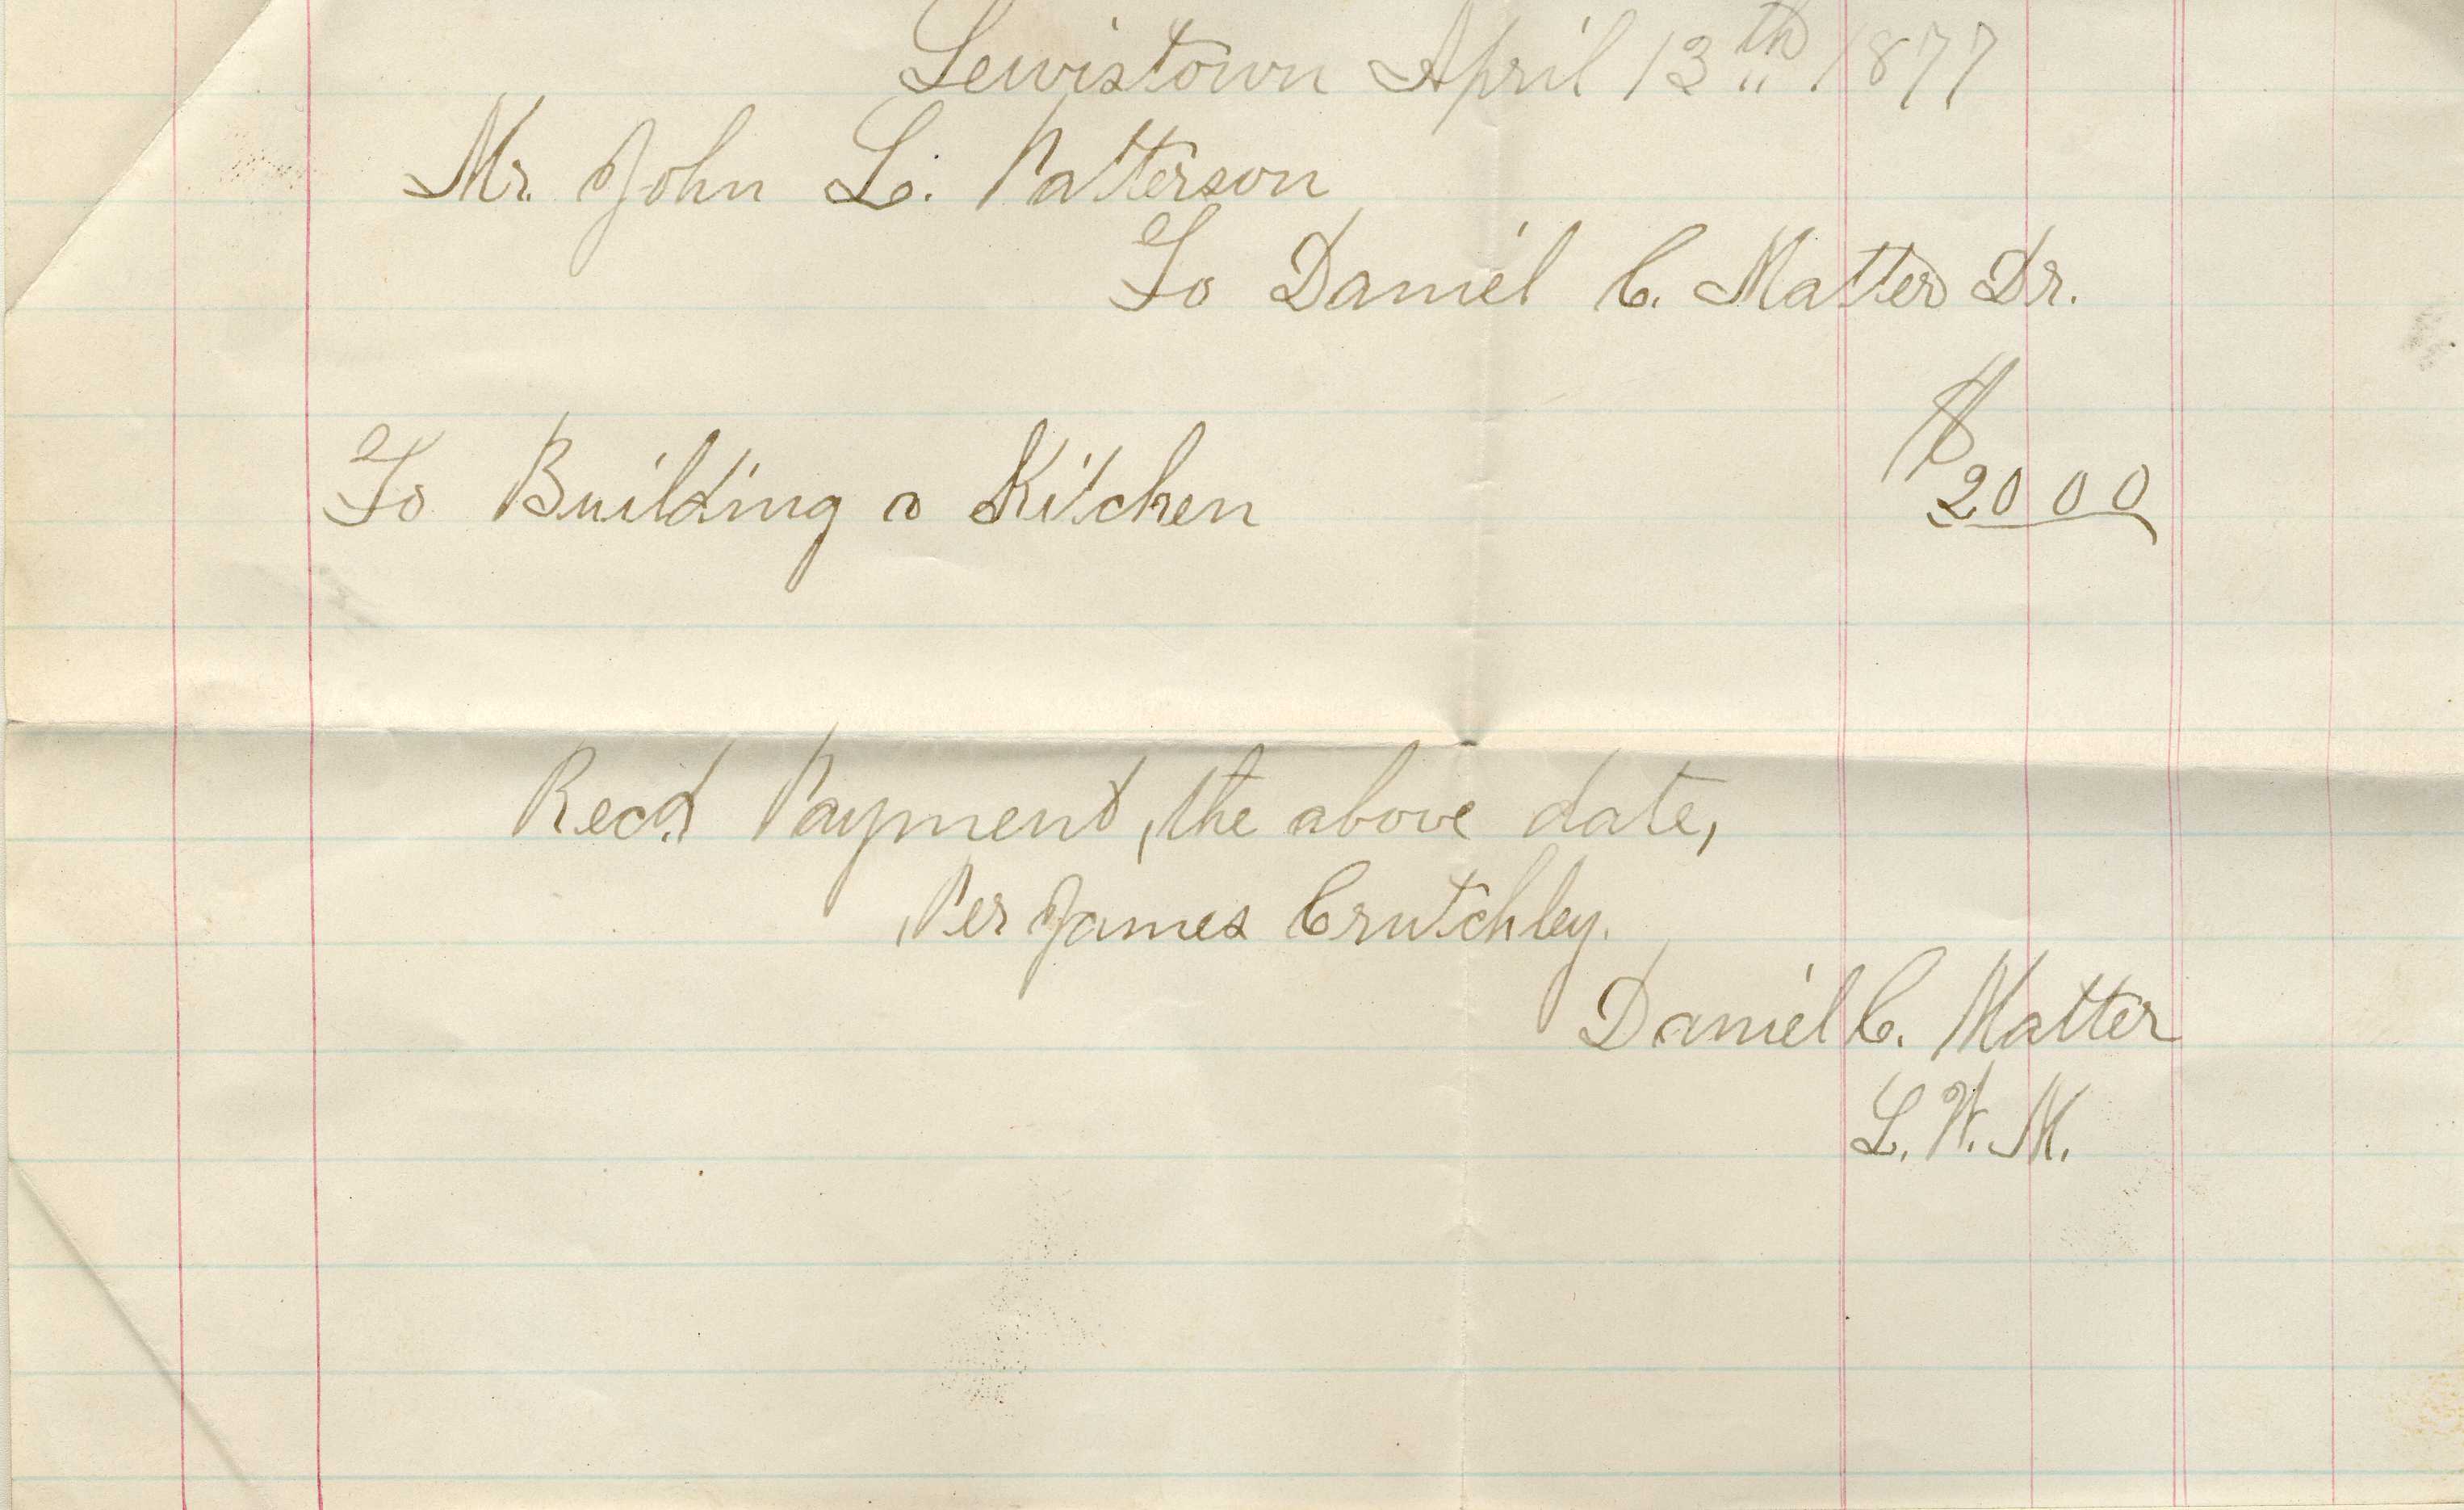 Lewistown April 13th 1877
Mr. John L. Patterson
To Daniel C. Matter Dr.
$
To Building a Kitchen 20 00
Recd. Payment, the above date,
Per James Crutchley.
Daniel C. Matter
L. W. M.